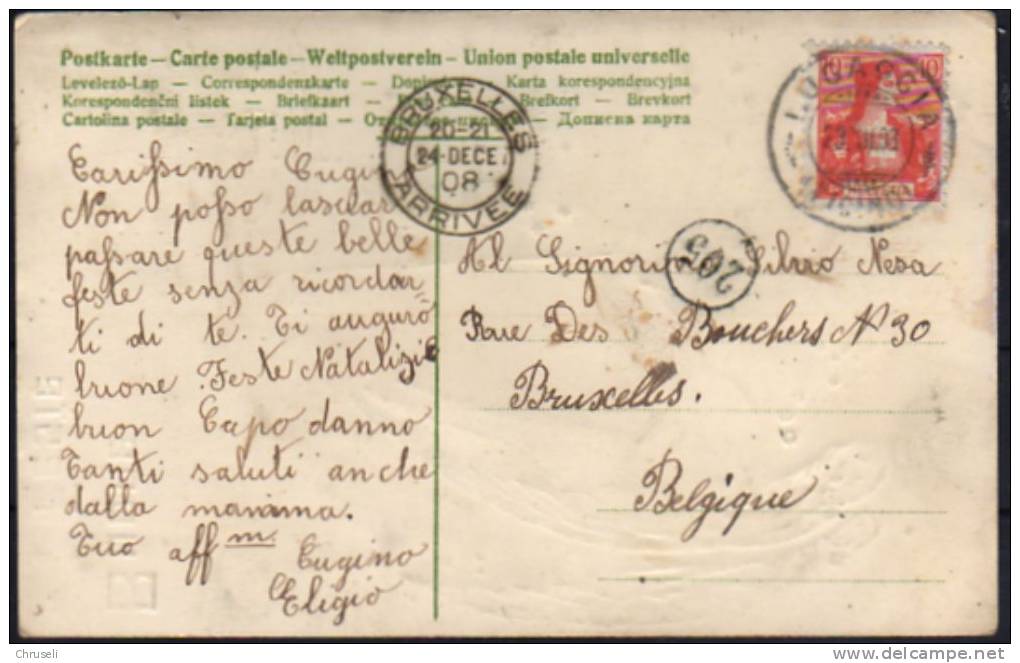 Postkarte – Carte postale – Weltpostverein – Union postale universelle
Levelező-Lap — Correspondenzkarte — Karta korespondencyjna
Korespondenční listek — Briefkaart — Brefkort — Brevkort
Cartolina postale — Tarjeta postal — Дописна карта
BRUXELLES
20-21
24 DECE
08
ARRIVÉE
LODANO
10
205
Carissimo Cugino
Non posso lasciar
passare queste belle
feste senza ricordar=
ti di te. Ti auguro
buone Feste Natalizie
buon Capo danno
Tanti saluti anche
dalla mamma.
Tuo affm. Cugino
Eligio
Al Signorin Silvio Nesa
Rue Des Bouchers N 30
Bruxelles.
Belgique
Chruseli
www.delcampe.net